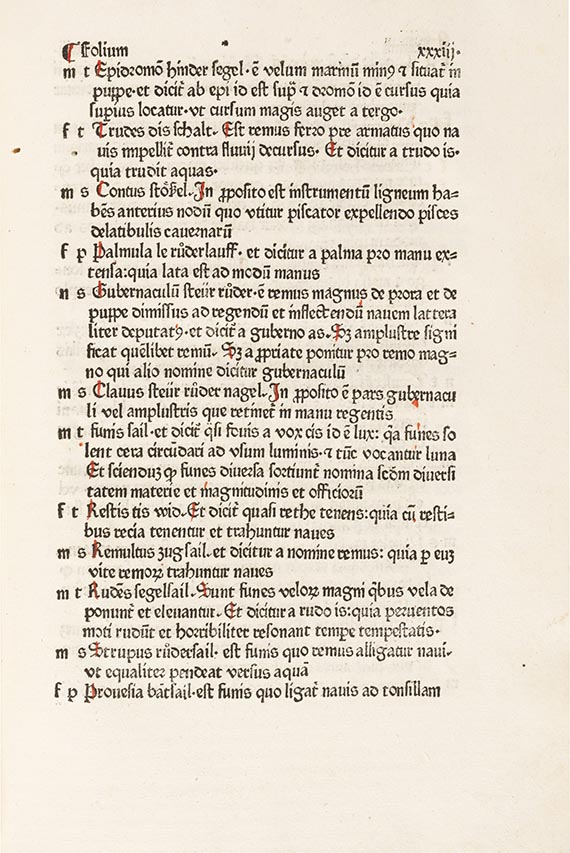 ¶ Folium xxxiij·
m t Epidromō hinder segel · ē velum marinū minꝰ ⁊ situat̄ in
puppe · et dicit̄ ab epi id est supᷓ ⁊ dromō id ē cursus quia
superius locatur · vt cursum magis auget a tergo ·
f t Trudes dis schalt . Est remus ferro pre armatus quo na
uis impellit̄ contra fluuij decursus . Et dicitur a trudo is ·
quia trudit aquas ·
m s Contus stôkel . In ꝓposito est instrumentū ligneum ha⸗
bēs anterius nodū quo vtitur piscator expellendo pisces
delatibulis cauernarū
f p Palmula le růderlauff · et dicitur a palma pro manu ex⸗
tensa : quia lata est ad modū manus
n s Gubernaculū steür růder · ē remus magnus de prora et de
puppe dimissus ad regendū et inflectendū nauem lattera
liter deputatꝰ · et dicit̄ a guberno as . Sꝫ amplustre signi
ficat quēlibet remū . Sꝫ a ꝓpriate ponitur pro remo mag⸗
no qui alio nomine dicitur gubernaculū
m s Clauus steür růder nagel . In ꝓposito ē pars gubernacu
li vel amplustris que retinet̄ in manu regentis
m t funis sail · et dicit̄ q̄si fouis a vox cis id ē lux : q̄a funes so
lent cera circūdari ad vsum luminis · ⁊ tūc vocantur luna
Et scienduꝫ ꝙ funes diuersa sortiunt̄ nomina scd̄m diuersi
tatem materie et magnitudinis et officiorū
f t Restis tis wid . Et dicit̄ quasi rethe tenens : quia cū resti⸗
bus recia tenentur et trahuntur naues
m s Remultus zugsail . et dicitur a nomine remus : quia p euꝫ
vite remoꝝ trahuntur naues
m t Rudēs segelsail . Sunt funes veloꝝ magni q̄bus vela de
ponunt̄ et eleuantur . Et dicitur a rudo is : quia per uentos
moti rudūt et horribiliter resonant tempe tempestatis ·
m s Strupus růdersail . est funis quo remus alligatur naui ·
vt equaliter pendeat versus aquā
f p Prouesia bātsail · est funis quo ligat̄ nauis ad tonsillam